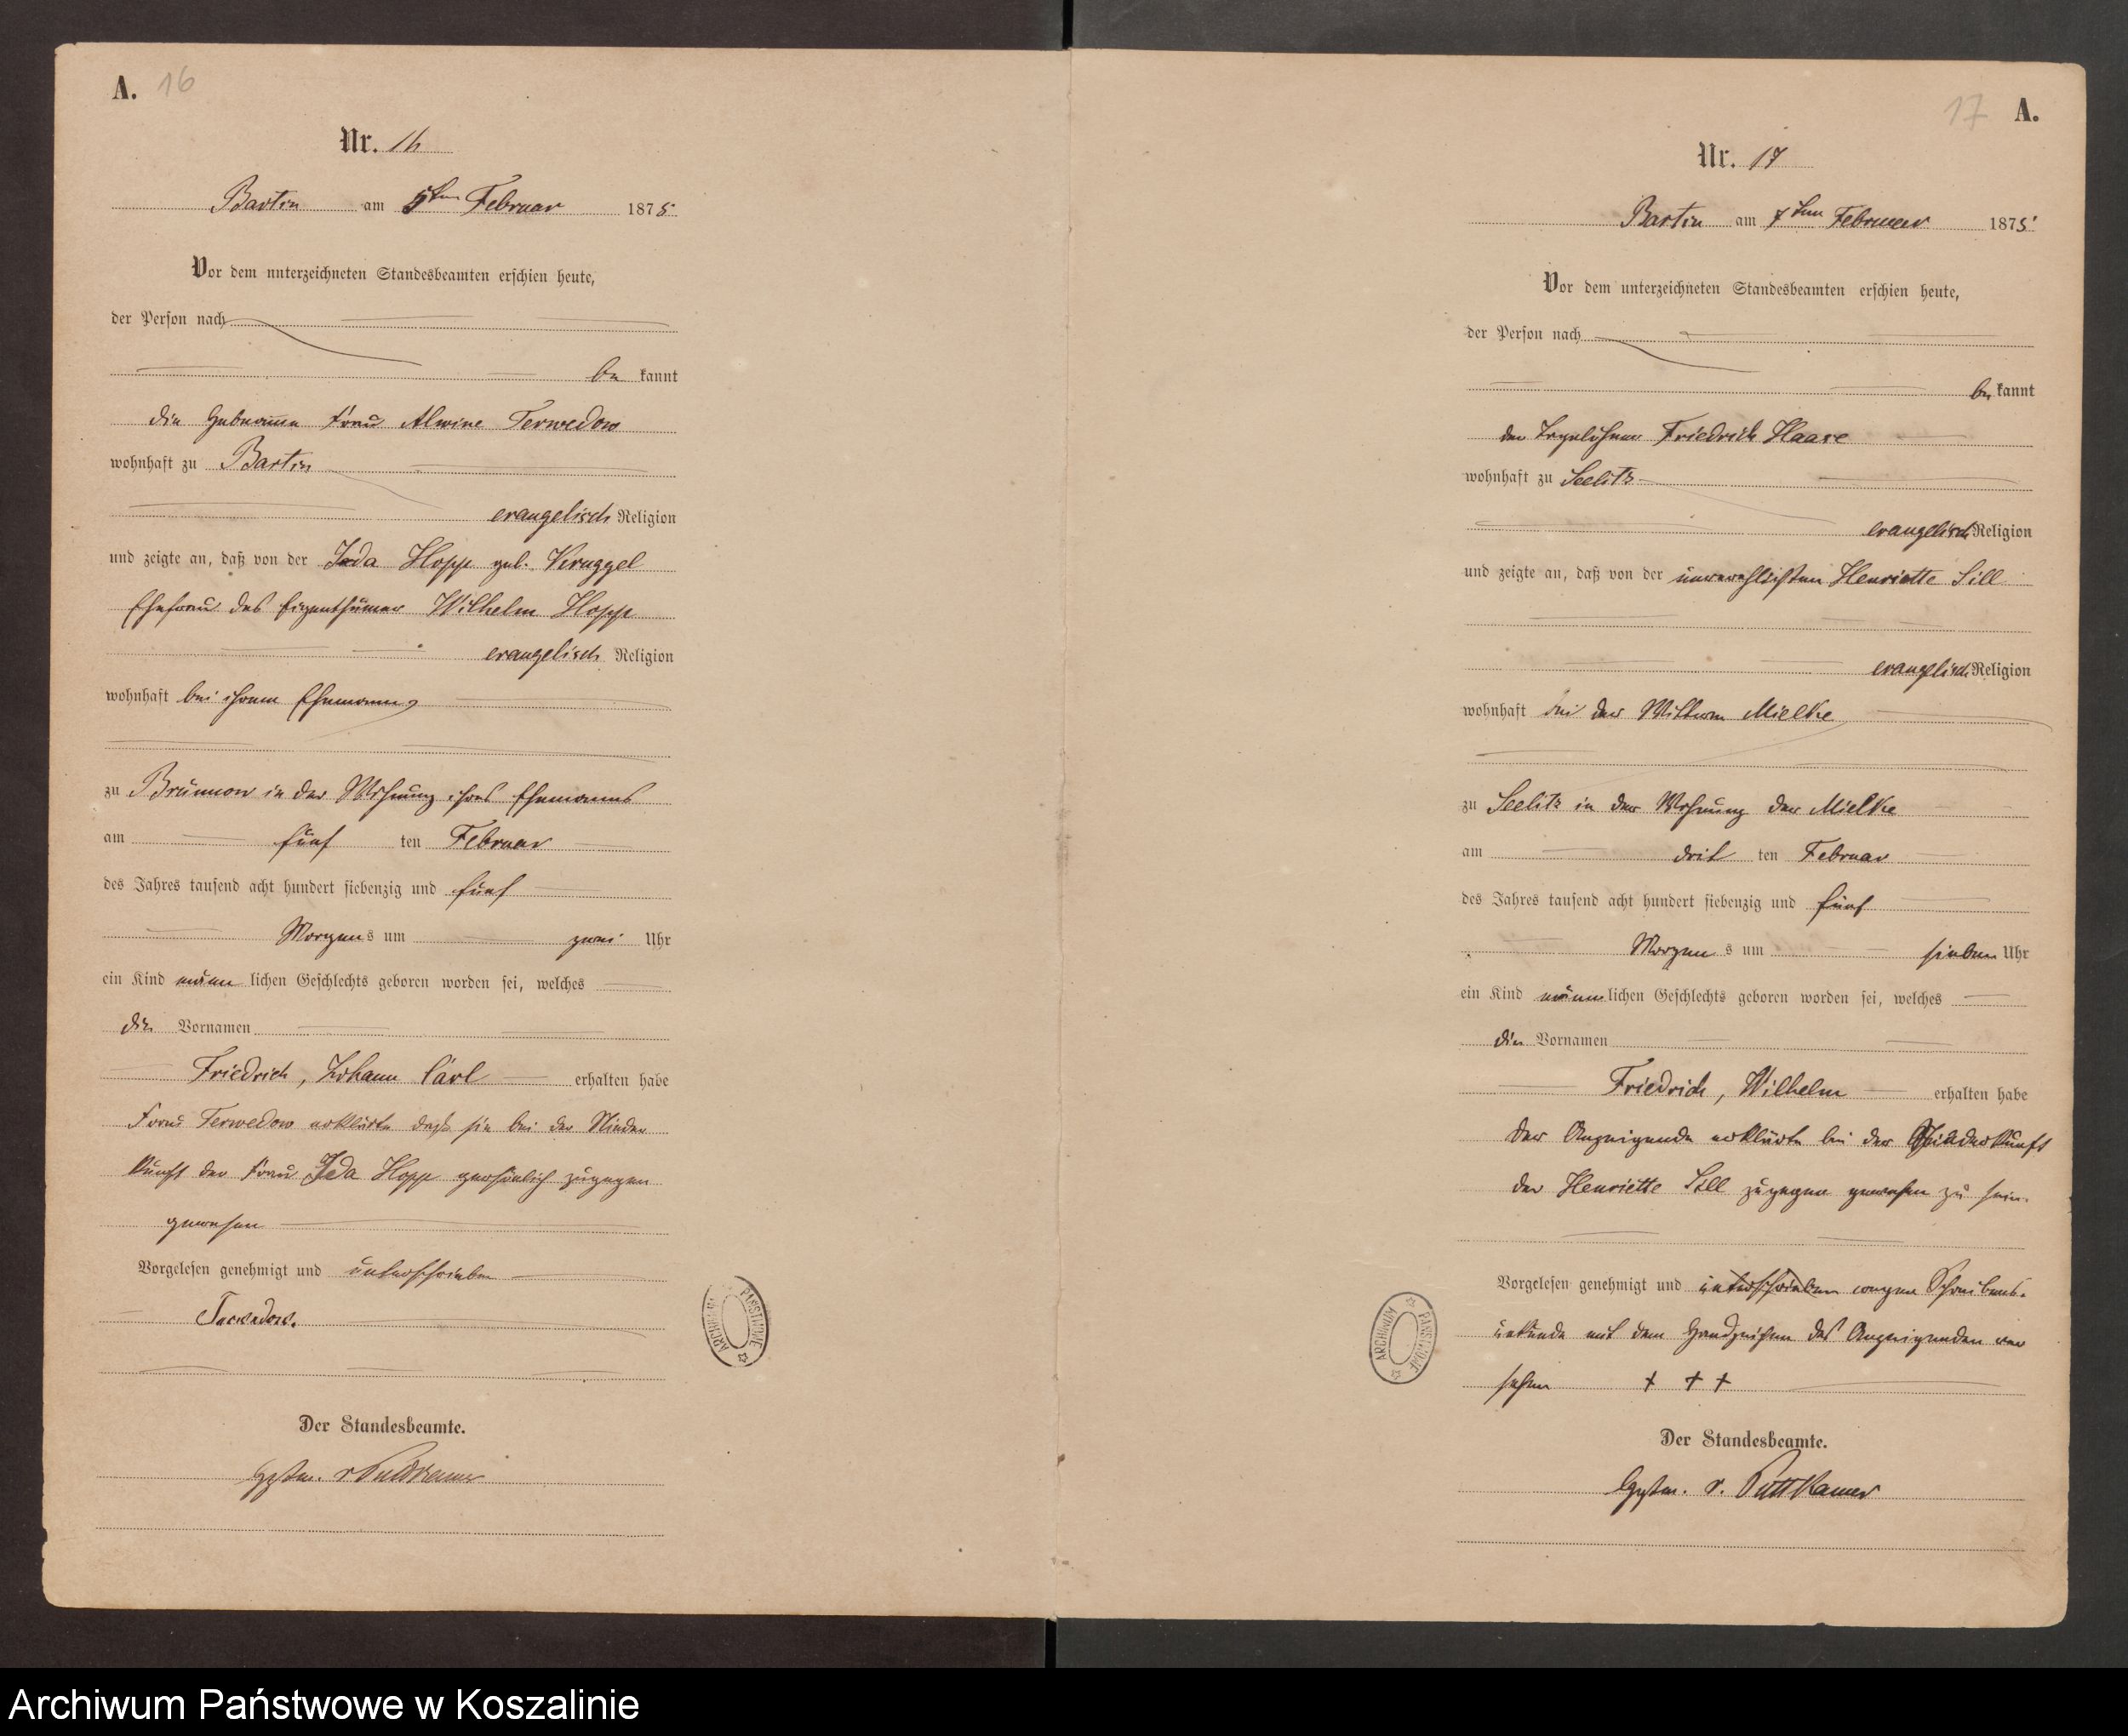 A. 16
Nr. 16
Bartin am 5ten Februar 1875.
Vor dem unterzeichneten Standesbeamten erschien heute,
der Person nach
be kannt
die Hebeamme Frau Alwine Terwedow
wohnhaft zu Bartin
evangelisch Religion
und zeigte an, daß von der Ida Hopp geb. Kruggel
Ehefrau des Eigenthümer Wilhelm Hopp
evangelisch Religion
wohnhaft bei ihrem Ehemann,
zu Brünnow in der Wohnung ihres Ehemanns
am fünf ten Februar
des Jahres tausend acht hundert siebenzig und fünf
Morgens um zwei Uhr
ein Kind männ lichen Geschlechts geboren worden sei, welches
die Vornamen
Friedrich, Johann Carl erhalten habe
Frau Terwedow erklärte daß sie bei der Nieder
kunft der Frau Ida Hopp persönlich zugegen
gewesen
Vorgelesen genehmigt und unterschrieben
Terwedow.
Der Standesbeamte.
v Puttkamer
ARCHIWUM PAŃSTWOWE
17 A.
Nr. 17
Bartin am 7ten Februar 1875
Vor dem unterzeichneten Standesbeamten erschien heute,
der Person nach
be kannt
der Tagelöhner Friedrich Haase
wohnhaft zu Seelitz
evangelisch Religion
und zeigte an, daß von der unverehlichten Henriette Sill
evangelisch Religion
wohnhaft bei der Wittwe Mielke
zu Seelitz in der Wohnung der Mielke
am drit ten Februar
des Jahres tausend acht hundert siebenzig und fünf
Morgen s um sieben Uhr
ein Kind männ lichen Geschlechts geboren worden sei, welches
die Vornamen
Friedrich, Wilhelm erhalten habe
Der Anzeigende erklärte bei der Niederkunft
der Henriette Sill zugegen gewesen zu sein.
Vorgelesen genehmigt und unterschrieben wegen Schreibens-
unkunde mit dem Handzeichen des Anzeigenden ver
sehen + + +
Der Standesbeamte.
v. Puttkamer
ARCHIWUM PAŃSTWOWE
Archiwum Państwowe w Koszalinie